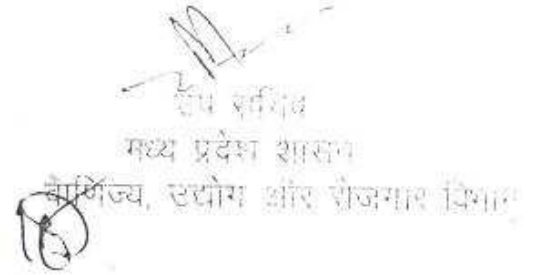 उप सचिव
मध्य प्रदेश शासन
वाणिज्य, उद्योग और रोजगार विभाग